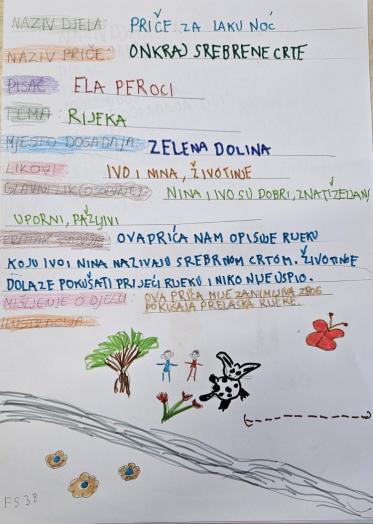 NAZIV DJELA: PRIČE ZA LAKU NOĆ
NAZIV PRIČE: ONKRAJ SREBRENE CRTE
PISAC: ELA PEROCI
TEMA: RIJEKA
MJESTO DOGAĐAJA: ZELENA DOLINA
LIKOVI: IVO I NINA, ŽIVOTINJE
GLAVNI LIK (OSOBINE): NINA I IVO SU DOBRI, ZNATIŽELJNI,
UPORNI, PAŽLJIVI
KRATAK OVA PRIČA NAM OPISUJE RIJEKU
KOJU IVO I NINA NAZIVAJU SREBRNOM CRTOM. ŽIVOTINJE
DOLAZE POKUŠATI PRIJEĆI RIJEKU I NIKO NIJE USPIO.
MIŠLJENJE O DJELU: OVA PRIČA MI JE ZANIMLJIVA ZBOG
POKUŠAJA PRELASKA RIJEKE.
ILUSTRACIJA
FS 3B